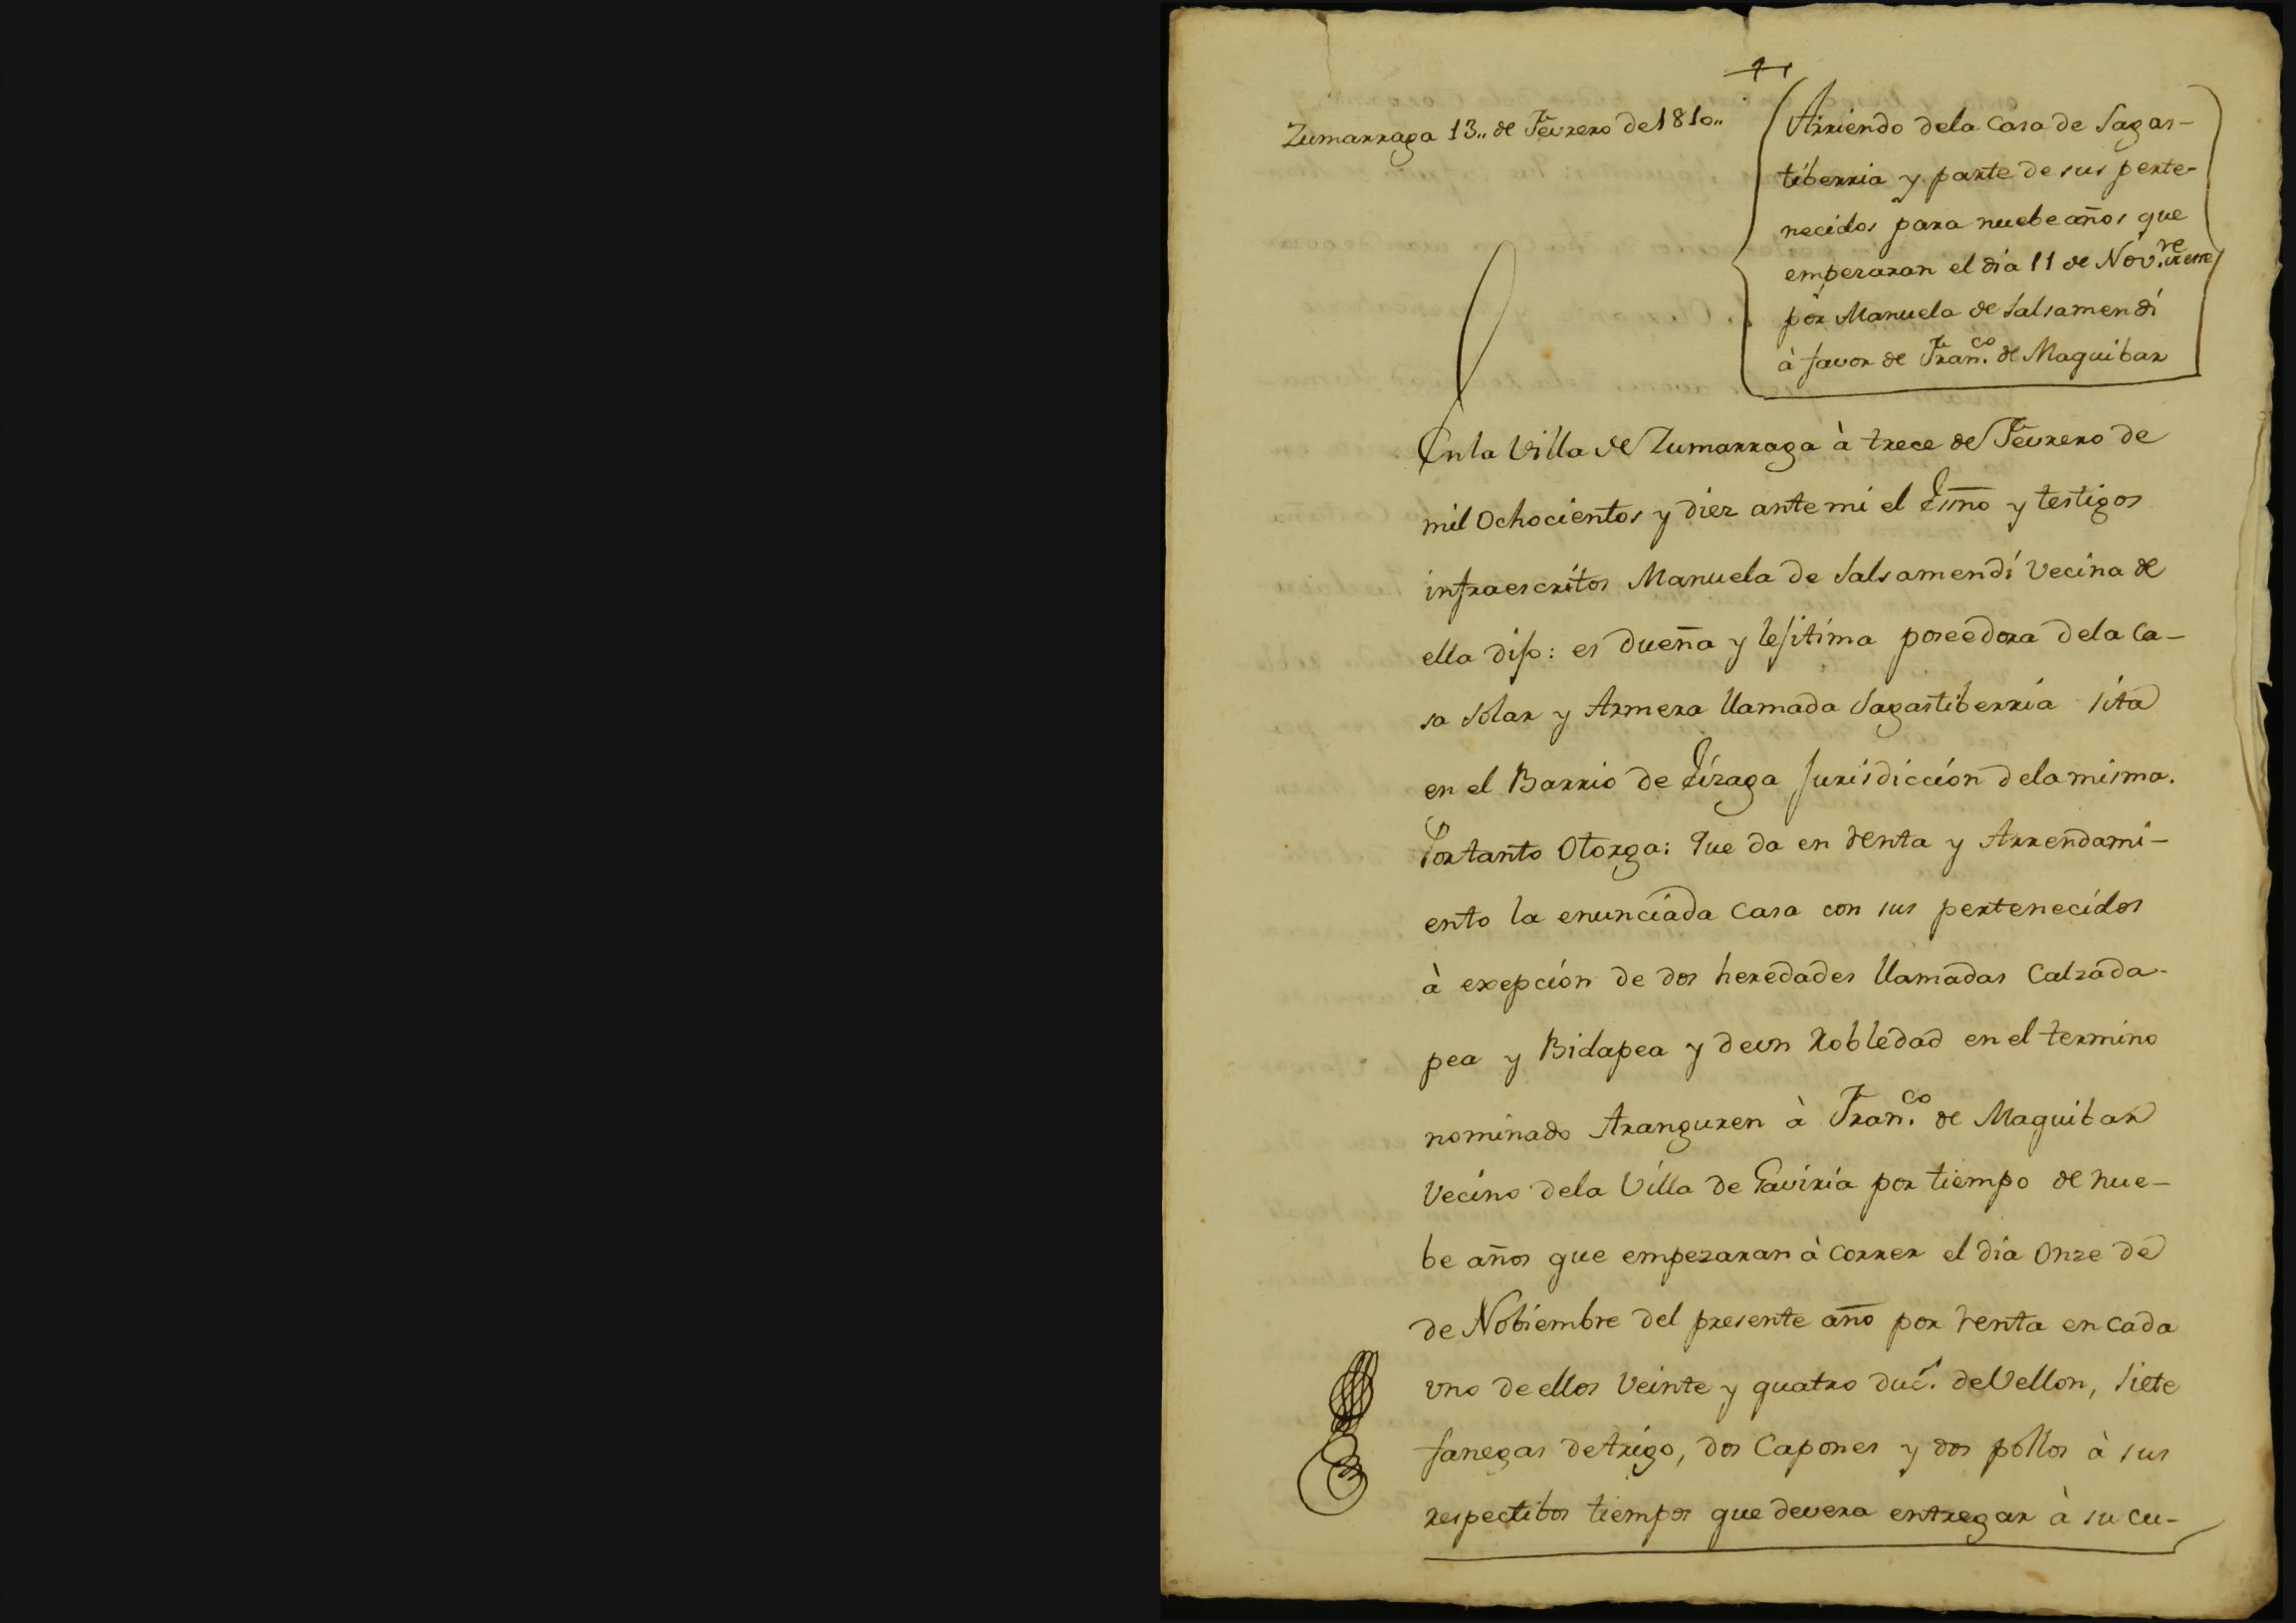 Zumarraga 13.. de Fevrero de 1810..
Arriendo dela Casa de Sagas-
tiberria y parte de sus perte-
necidos para nuebe años que
empezaran el dia 11 de Nov.re
por Manuela de Salsamendi
à favor de Fran.co de Maguibar
En la Villa de Zumarraga à trece de Fevrero de
mil Ochocientos y diez ante mi el Esño y testigos
infraescritos Manuela de Salsamendi Vecina de
ella dijo: es dueña y lejitima poseedora dela Ca-
sa Solar y Armera llamada Sagastiberria sita
en el Barrio de Eizaga Jurisdiccion dela misma.
Portanto Otorga: Que da en Renta y Arrendami-
ento la enunciada Casa con sus pertenecidos
à exepcion de dos heredades llamadas Calzada-
pea y Bidapea y de un Robledad en el termino
nominado Aranguren à Fran.co de Maguibar
Vecino dela Villa de Gaviria por tiempo de nue-
be años que empezaran à correr el dia Onze de
de Nobiembre del presente año por renta en cada
uno de ellos Veinte y quatro duc.s de Vellon, Siete
fanegas de trigo, dos Capones y dos pollos à sus
respectibos tiempos que devera entregar à su cu-